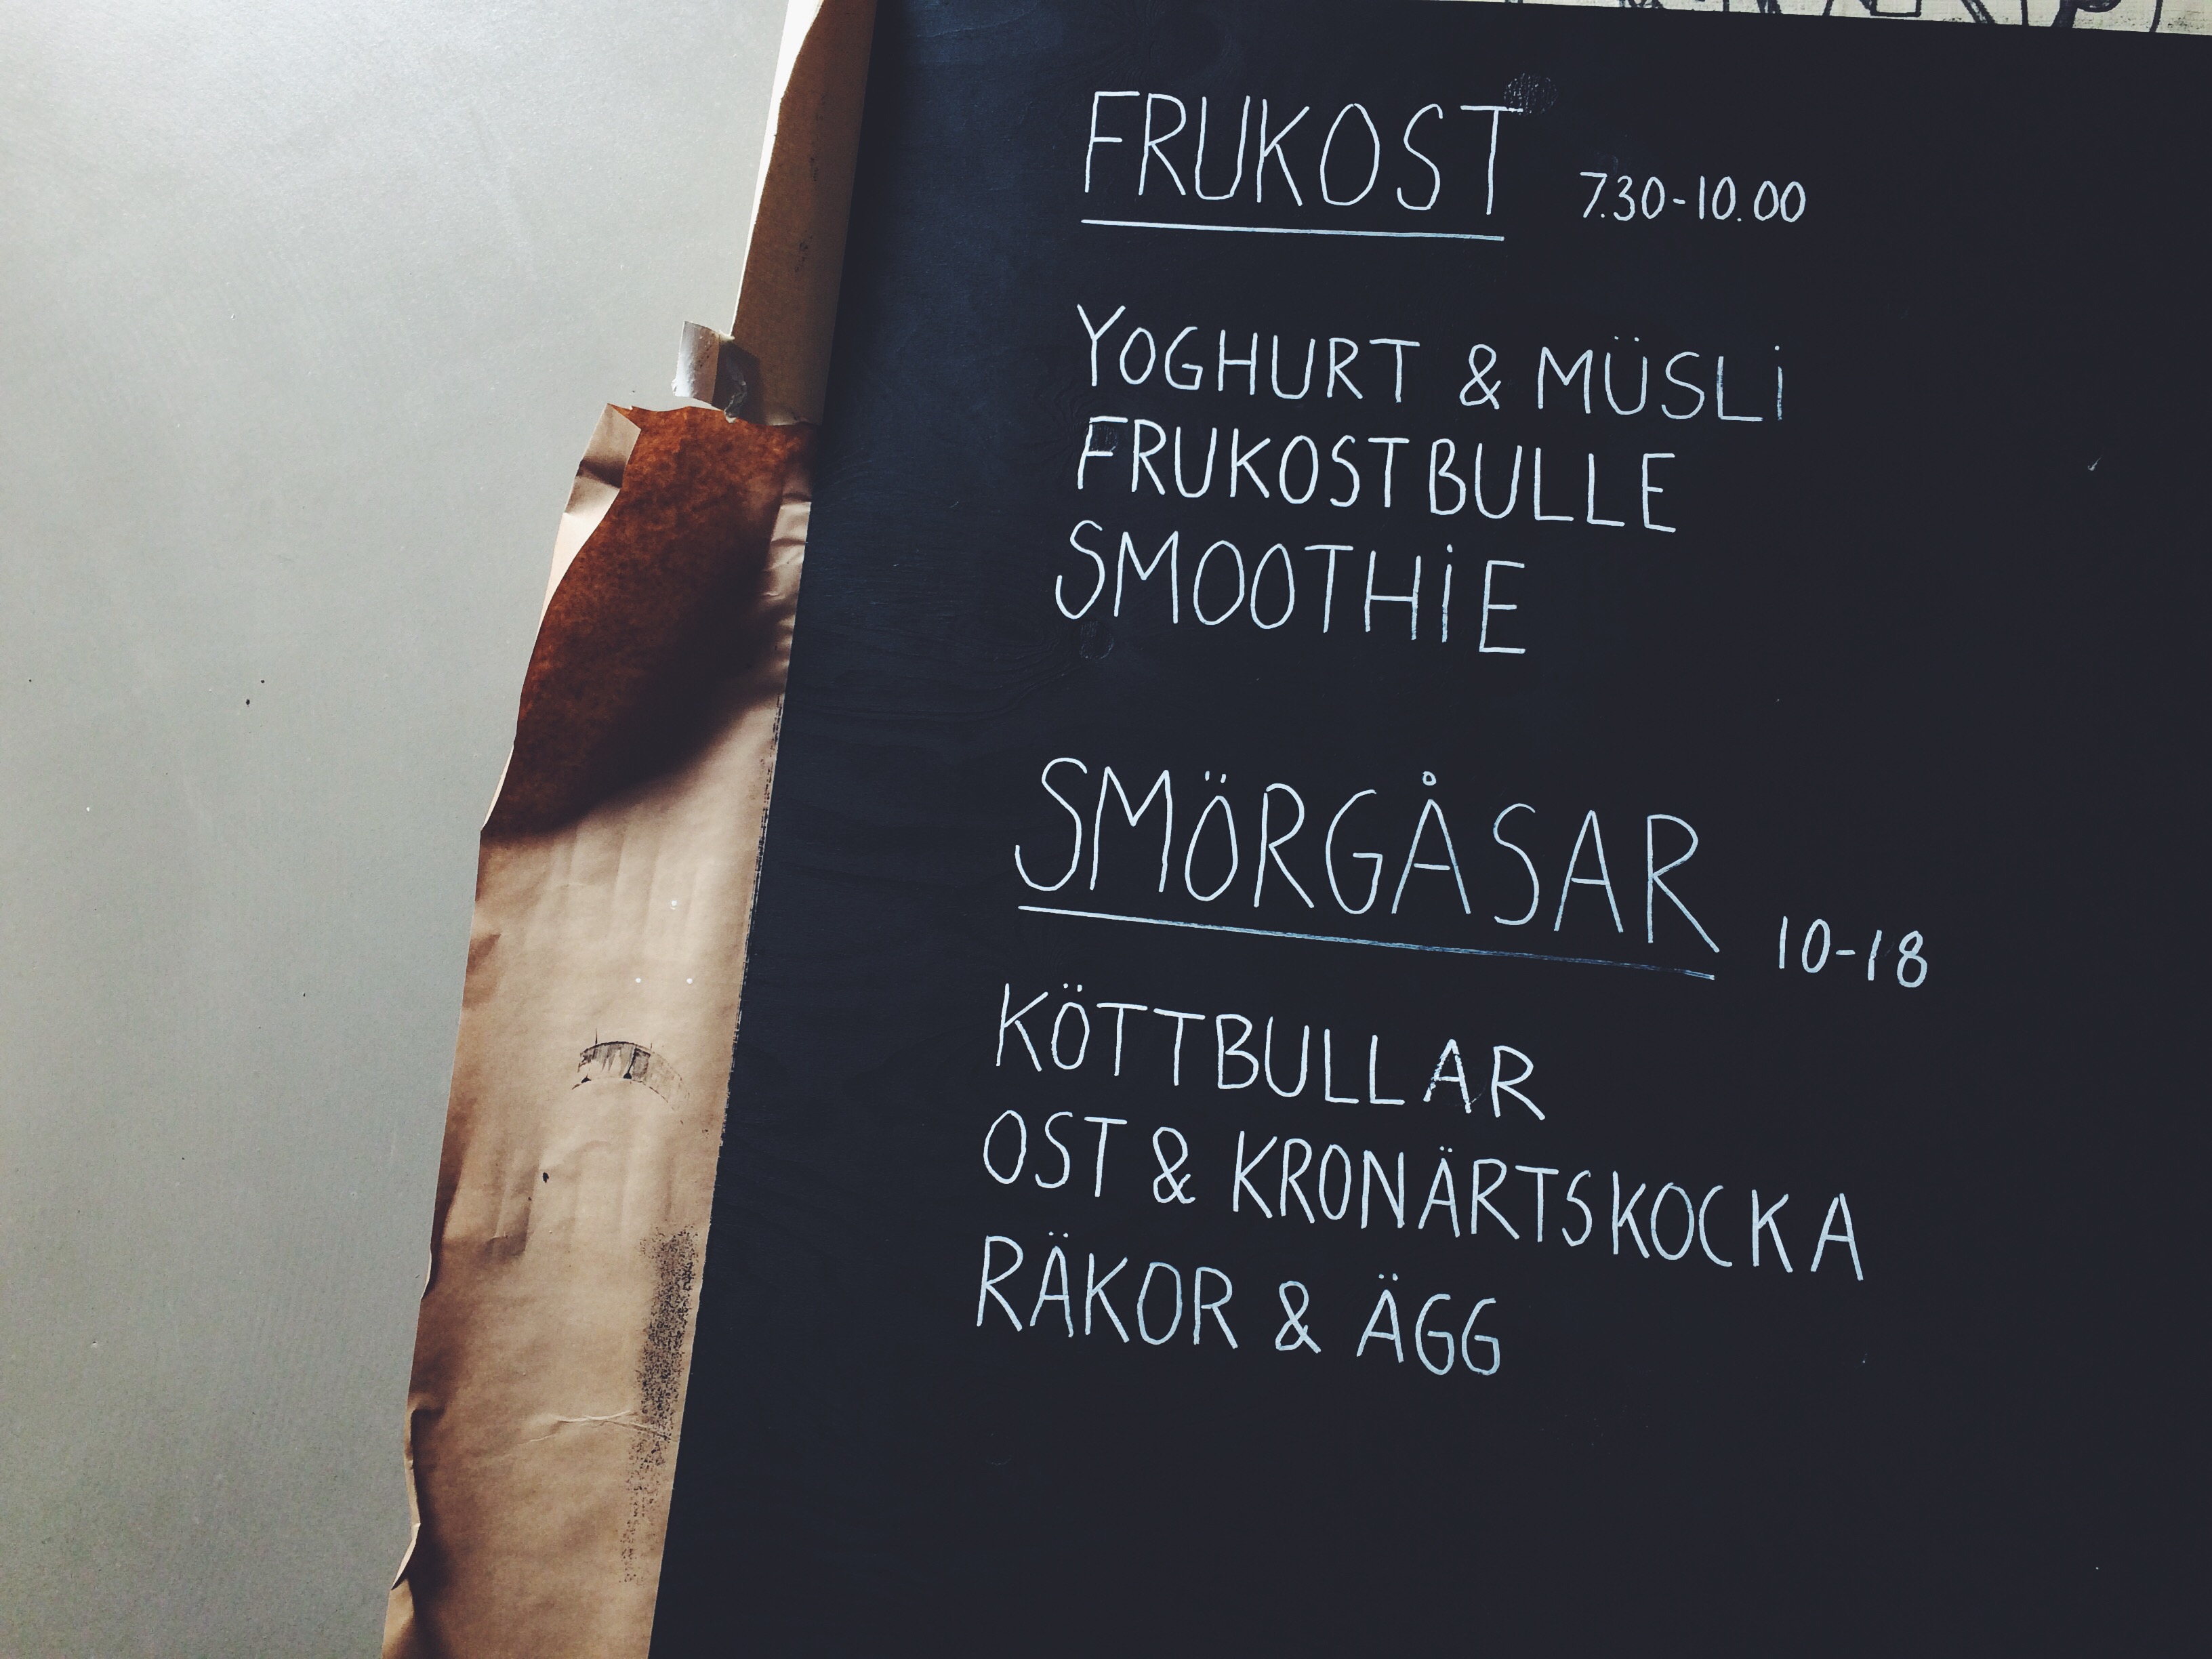 FRUKOST 7.30-10.00
YOGHURT & MÜSLi
FRUKOSTBULLE
SMOOTHiE
SMÖRGÅSAR 10-18
KÖTTBULLAR
OST & KRONÄRTSKOCKA
RÄKOR & ÄGG